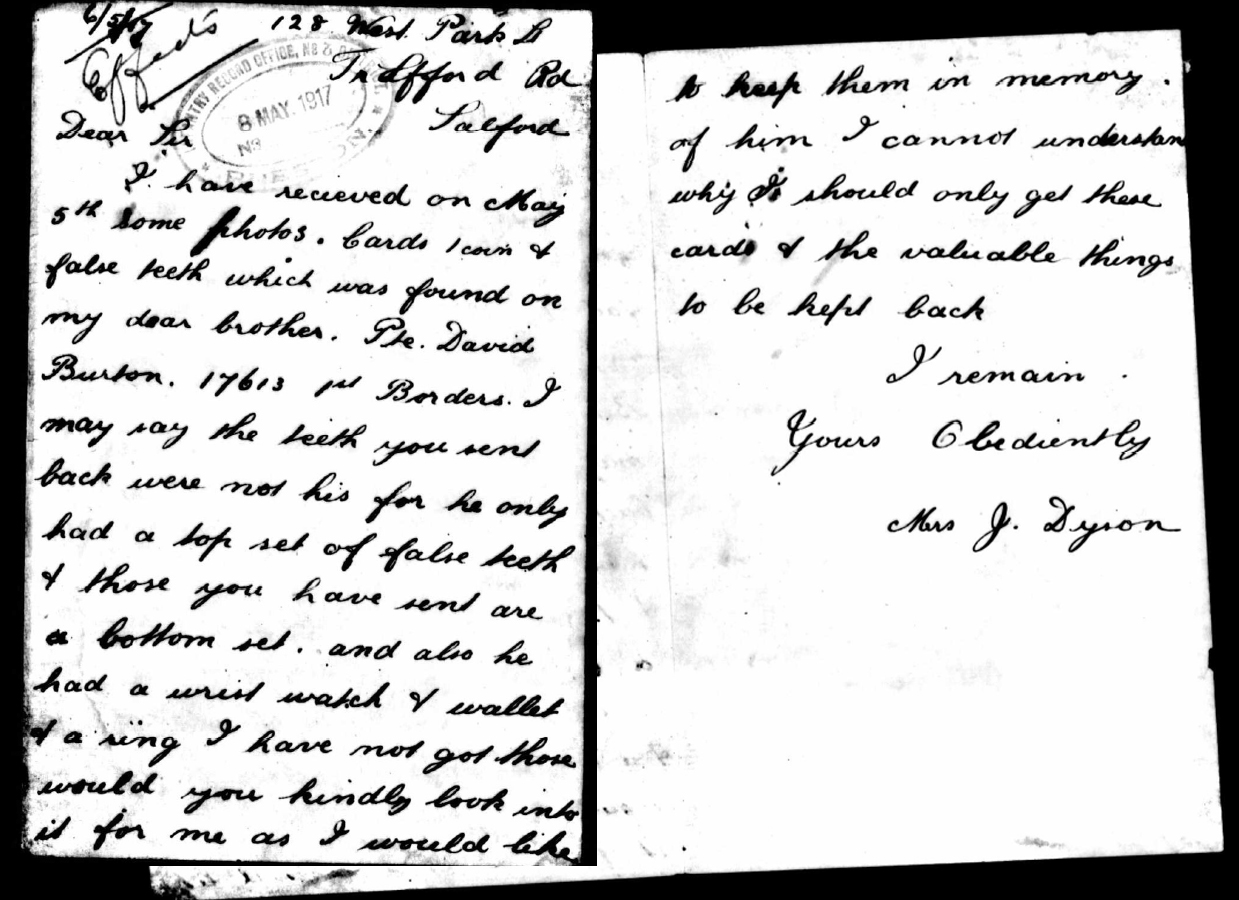 6/5/17
Effects
128 West Park St
Trafford Rd
Salford
RECORD OFFICE, No 2
8 MAY. 1917
No
PRESTON
Dear Sir
I have recieved on May
5th some photos. Cards 1 coin &
false teeth which was found on
my dear brother. Pte. David
Burton. 17613 1st Borders. I
may say the teeth you sent
back were not his for he only
had a top set of false teeth
& those you have sent are
a bottom set. and also he
had a wrist watch & wallet
& a ring I have not got those
would you kindly look into
it for me as I would like
to keep them in memory.
of him I cannot understan
why I should only get these
cards & the valuable things
to be kept back
I remain.
Yours Obediently
Mrs J. Dyson